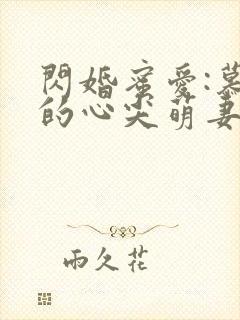 閃婚蜜愛:慕
的心尖萌妻
雨久花